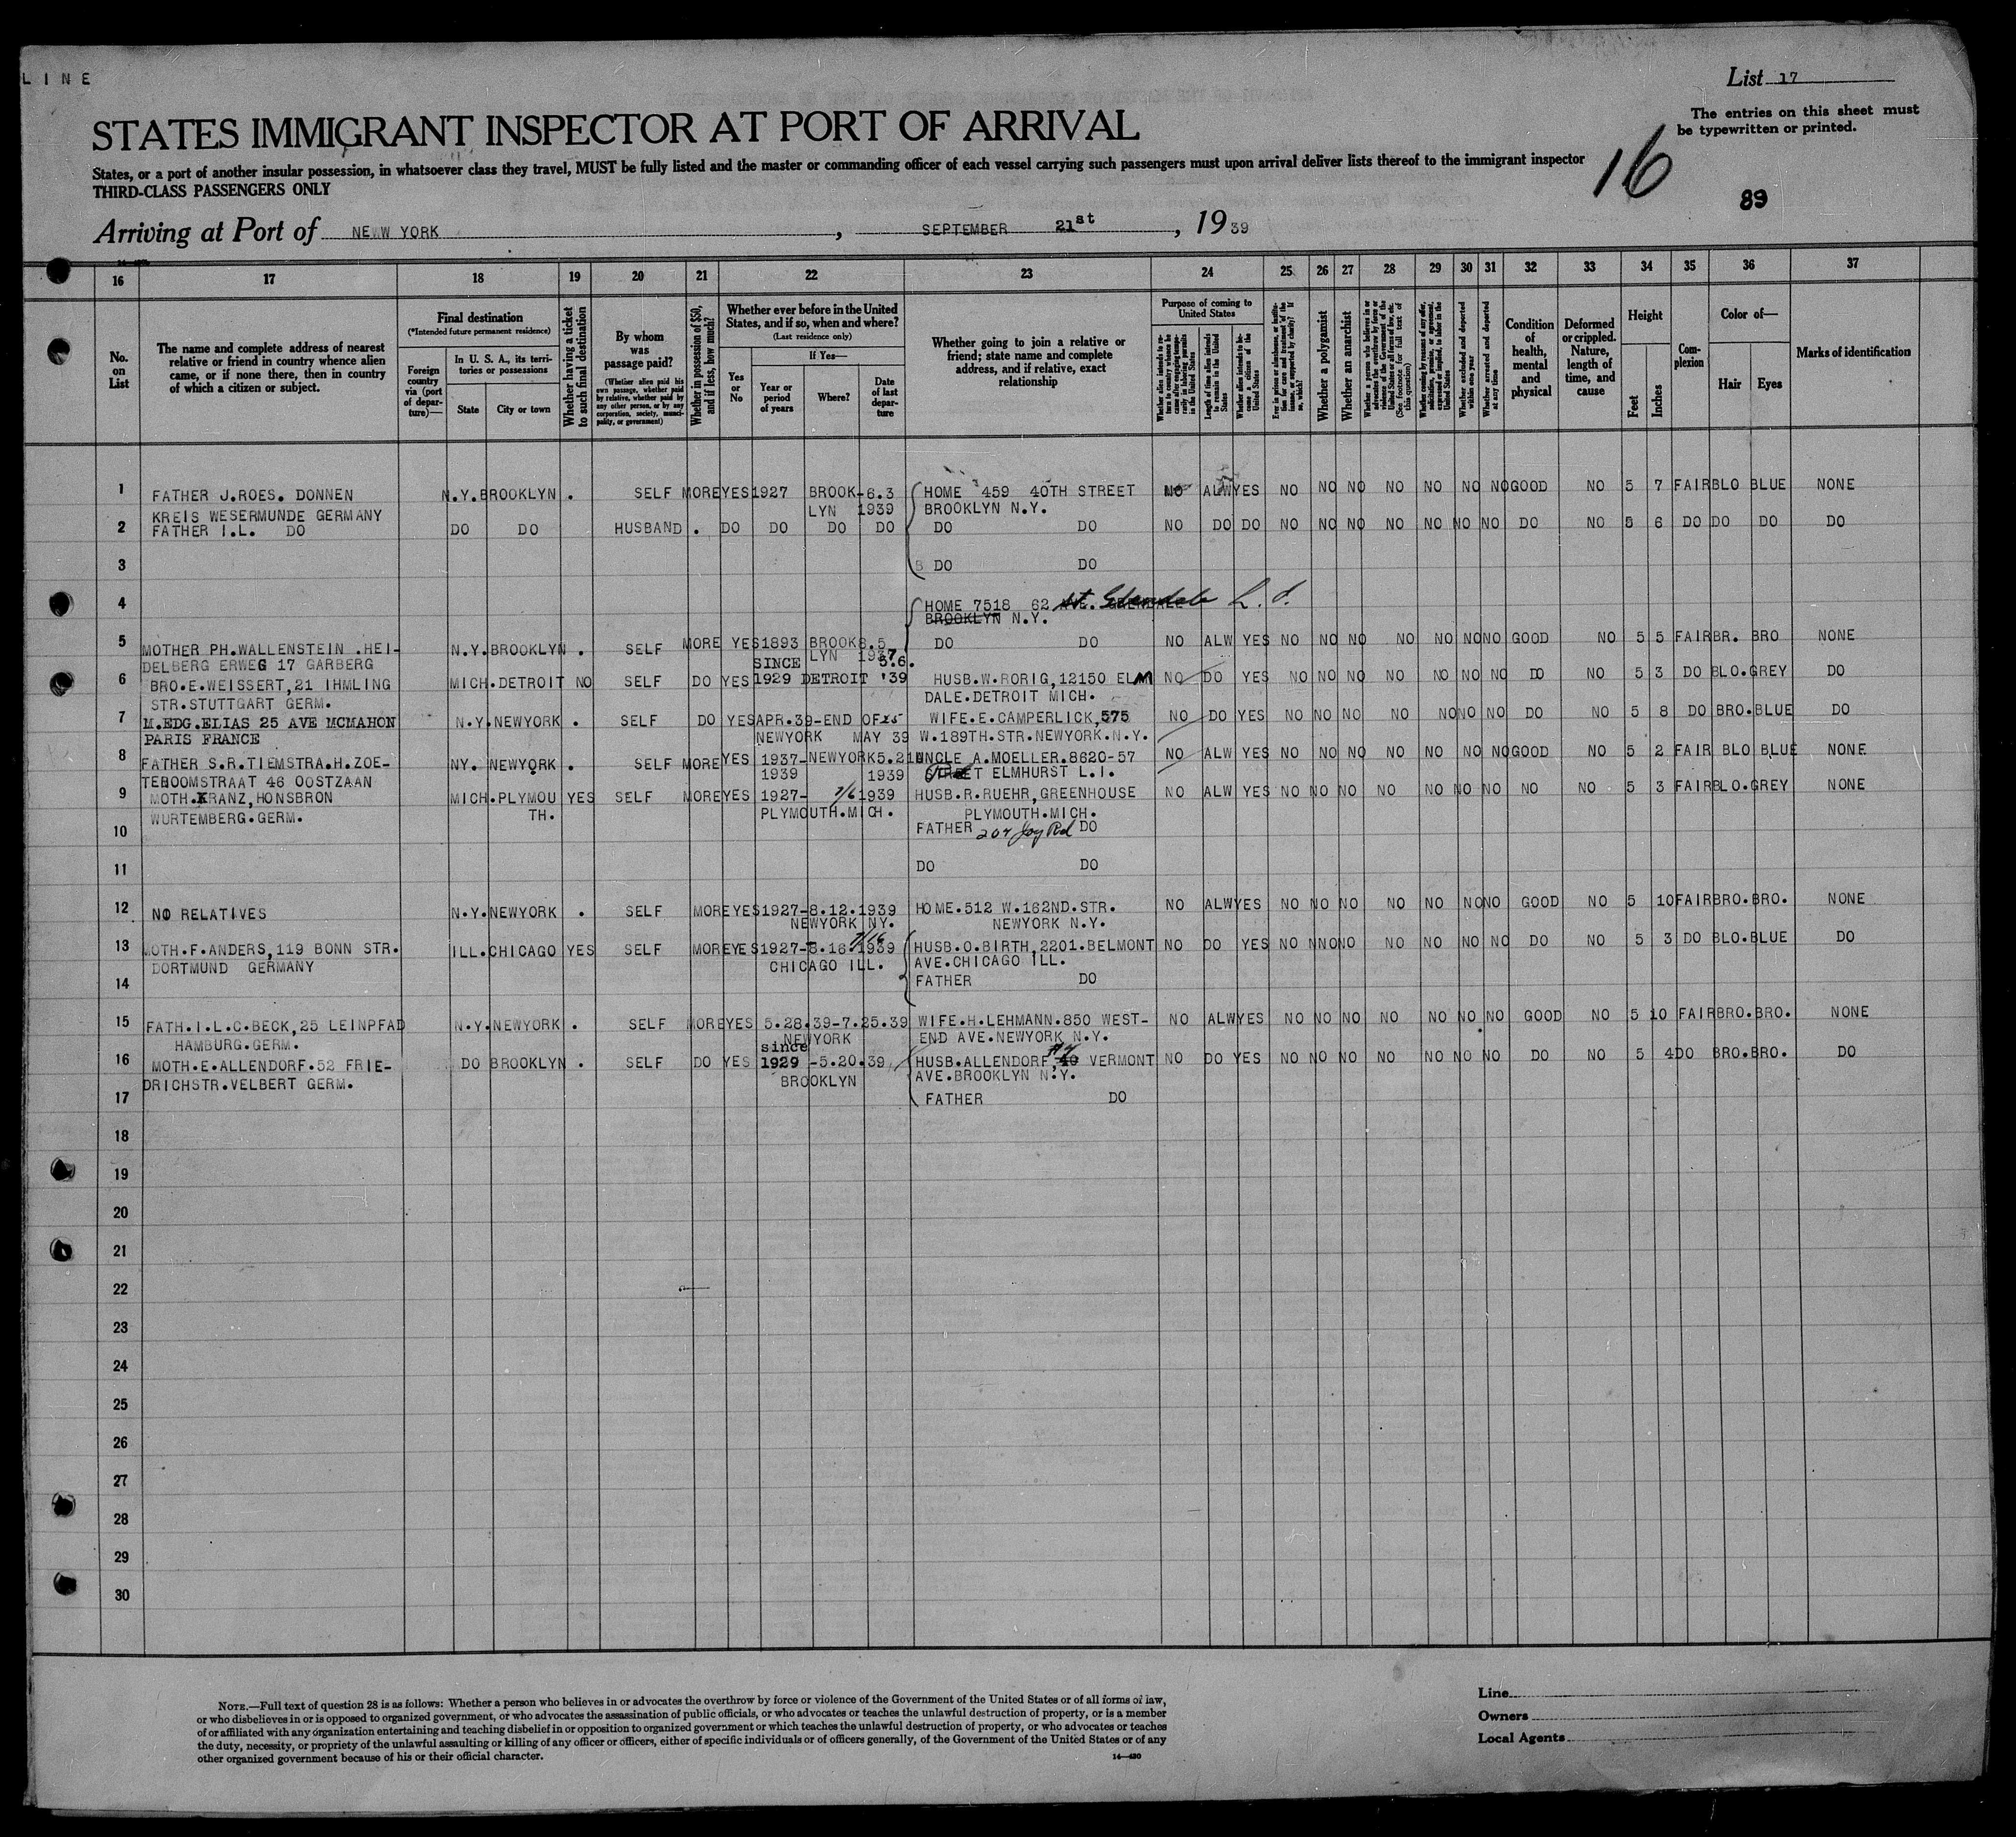 LINE
List 17
The entries on this sheet must
be typewritten or printed.
STATES IMMIGRANT INSPECTOR AT PORT OF ARRIVAL
16
89
States, or a port of another insular possession, in whatsoever class they travel, MUST be fully listed and the master or commanding officer of each vessel carrying such passengers must upon arrival deliver lists thereof to the immigrant inspector
THIRD-CLASS PASSENGERS ONLY
Arriving at Port of NEWW YORK, SEPTEMBER 21st, 1939
16 17 18 19 20 21 22 23 24 25 26 27 28 29 30 31 32 33 34 35 36 37
No. on List
The name and complete address of nearest relative or friend in country whence alien came, or if none there, then in country of which a citizen or subject.
Final destination
(*Intended future permanent residence)
Foreign country via (port of departure)—
In U. S. A., its territories or possessions
State
City or town
Whether having a ticket to such final destination
By whom was passage paid?
(Whether alien paid his own passage, whether paid by relative, whether paid by any other person, or by any corporation, society, municipality, or government)
Whether in possession of $50, and if less, how much?
Whether ever before in the United States, and if so, when and where?
(Last residence only)
Yes or No
If Yes—
Year or period of years
Where?
Date of last departure
Whether going to join a relative or friend; state name and complete address, and if relative, exact relationship
Purpose of coming to United States
Length of time alien intends to remain in the United States
Whether alien intends to become a citizen of the United States
Whether a polygamist
Whether an anarchist
Whether excluded and deported within one year
Whether arrested and deported at any time
Condition of health, mental and physical
Deformed or crippled. Nature, length of time, and cause
Height
Feet
Inches
Complexion
Color of—
Hair
Eyes
Marks of identification
1 FATHER J.ROES. DONNEN N.Y. BROOKLYN . SELF MORE YES 1927 BROOK- 6.3 HOME 459 40TH STREET NO ALW YES NO NO NO NO NO NO NO GOOD NO 5 7 FAIR BLO BLUE NONE
KREIS WESERMUNDE GERMANY LYN 1939 BROOKLYN N.Y.
2 FATHER I.L. DO DO DO HUSBAND . DO DO DO DO DO DO NO DO DO NO NO NO NO NO NO NO DO NO 5 6 DO DO DO DO
3 DO DO
4 HOME 7518 62 St. Glendale L.I.
BROOKLYN N.Y.
5 MOTHER PH.WALLENSTEIN .HEI- N.Y. BROOKLYN . SELF MORE YES 1893 BROOK 8.5 DO DO NO ALW YES NO NO NO NO NO NO NO GOOD NO 5 5 FAIR BR. BRO NONE
DELBERG ERWEG 17 GARBERG SINCE LYN 1937 5.6.
6 BRO.E.WEISSERT,21 IHMLING MICH. DETROIT NO SELF DO YES 1929 DETROIT '39 HUSB.W.RORIG,12150 ELM NO DO YES NO NO NO NO NO NO NO DO NO 5 3 DO BLO. GREY DO
STR.STUTTGART GERM. DALE.DETROIT MICH.
7 M.EDG.ELIAS 25 AVE MCMAHON N.Y. NEWYORK . SELF DO YES APR.39-END OF 25 WIFE.E.CAMPERLICK,575 NO DO YES NO NO NO NO NO NO NO DO NO 5 8 DO BRO. BLUE DO
PARIS FRANCE NEWYORK MAY 39 W.189TH.STR.NEWYORK.N.Y.
8 FATHER S.R.TIEMSTRA.H.ZOE- NY. NEWYORK . SELF MORE YES 1937- NEWYORK 5.21 UNCLE A.MOELLER.8620-57 NO ALW YES NO NO NO NO NO NO NO GOOD NO 5 2 FAIR BLO BLUE NONE
TEBOOMSTRAAT 46 OOSTZAAN 1939 1939 ELMHURST L.I.
9 MOTH.KRANZ,HONSBRON MICH. PLYMOU YES SELF MORE YES 1927- 7/6 1939 HUSB.R.RUEHR,GREENHOUSE NO ALW YES NO NO NO NO NO NO NO NO NO 5 3 FAIR BLO. GREY NONE
WURTEMBERG.GERM. TH. PLYMOUTH.MICH. PLYMOUTH.MICH.
10 FATHER 204 Joy Rd DO
11 DO DO
12 NO RELATIVES N.Y. NEWYORK . SELF MORE YES 1927-8.12.1939 HOME.512 W.162ND.STR. NO ALW YES NO NO NO NO NO NO NO GOOD NO 5 10 FAIR BRO. BRO. NONE
NEWYORK NY. NEWYORK N.Y.
13 MOTH.F.ANDERS,119 BONN STR. ILL. CHICAGO YES SELF MORE YES 1927-8.16.1939 7/16 HUSB.O.BIRTH,2201.BELMONT NO DO YES NO NO NO NO NO NO NO DO NO 5 3 DO BLO. BLUE DO
DORTMUND GERMANY CHICAGO ILL. AVE.CHICAGO ILL.
14 FATHER DO
15 FATH.I.L.C.BECK,25 LEINPFAD N.Y. NEWYORK . SELF MORE YES 5.28.39-7.25.39 WIFE.H.LEHMANN.850 WEST- NO ALW YES NO NO NO NO NO NO NO GOOD NO 5 10 FAIR BRO. BRO. NONE
HAMBURG.GERM. NEWYORK END AVE.NEWYORK N.Y.
since
16 MOTH.E.ALLENDORF.52 FRIE- DO BROOKLYN . SELF DO YES 1929 -5.20.39 HUSB.ALLENDORF, VERMONT NO DO YES NO NO NO NO NO NO NO DO NO 5 4 DO BRO. BRO. DO
DRICHSTR.VELBERT GERM. BROOKLYN AVE.BROOKLYN N.Y.
17 FATHER DO
18
19
20
21
22
23
24
25
26
27
28
29
30
NOTE.—Full text of question 28 is as follows: Whether a person who believes in or advocates the overthrow by force or violence of the Government of the United States or of all forms of law,
or who disbelieves in or is opposed to organized government, or who advocates the assassination of public officials, or who advocates or teaches the unlawful destruction of property, or is a member
of or affiliated with any organization entertaining and teaching disbelief in or opposition to organized government or which teaches the unlawful destruction of property, or who advocates or teaches
the duty, necessity, or propriety of the unlawful assaulting or killing of any officer or officers, either of specific individuals or of officers generally, of the Government of the United States or of any
other organized government because of his or their official character.
14—430
Line
Owners
Local Agents